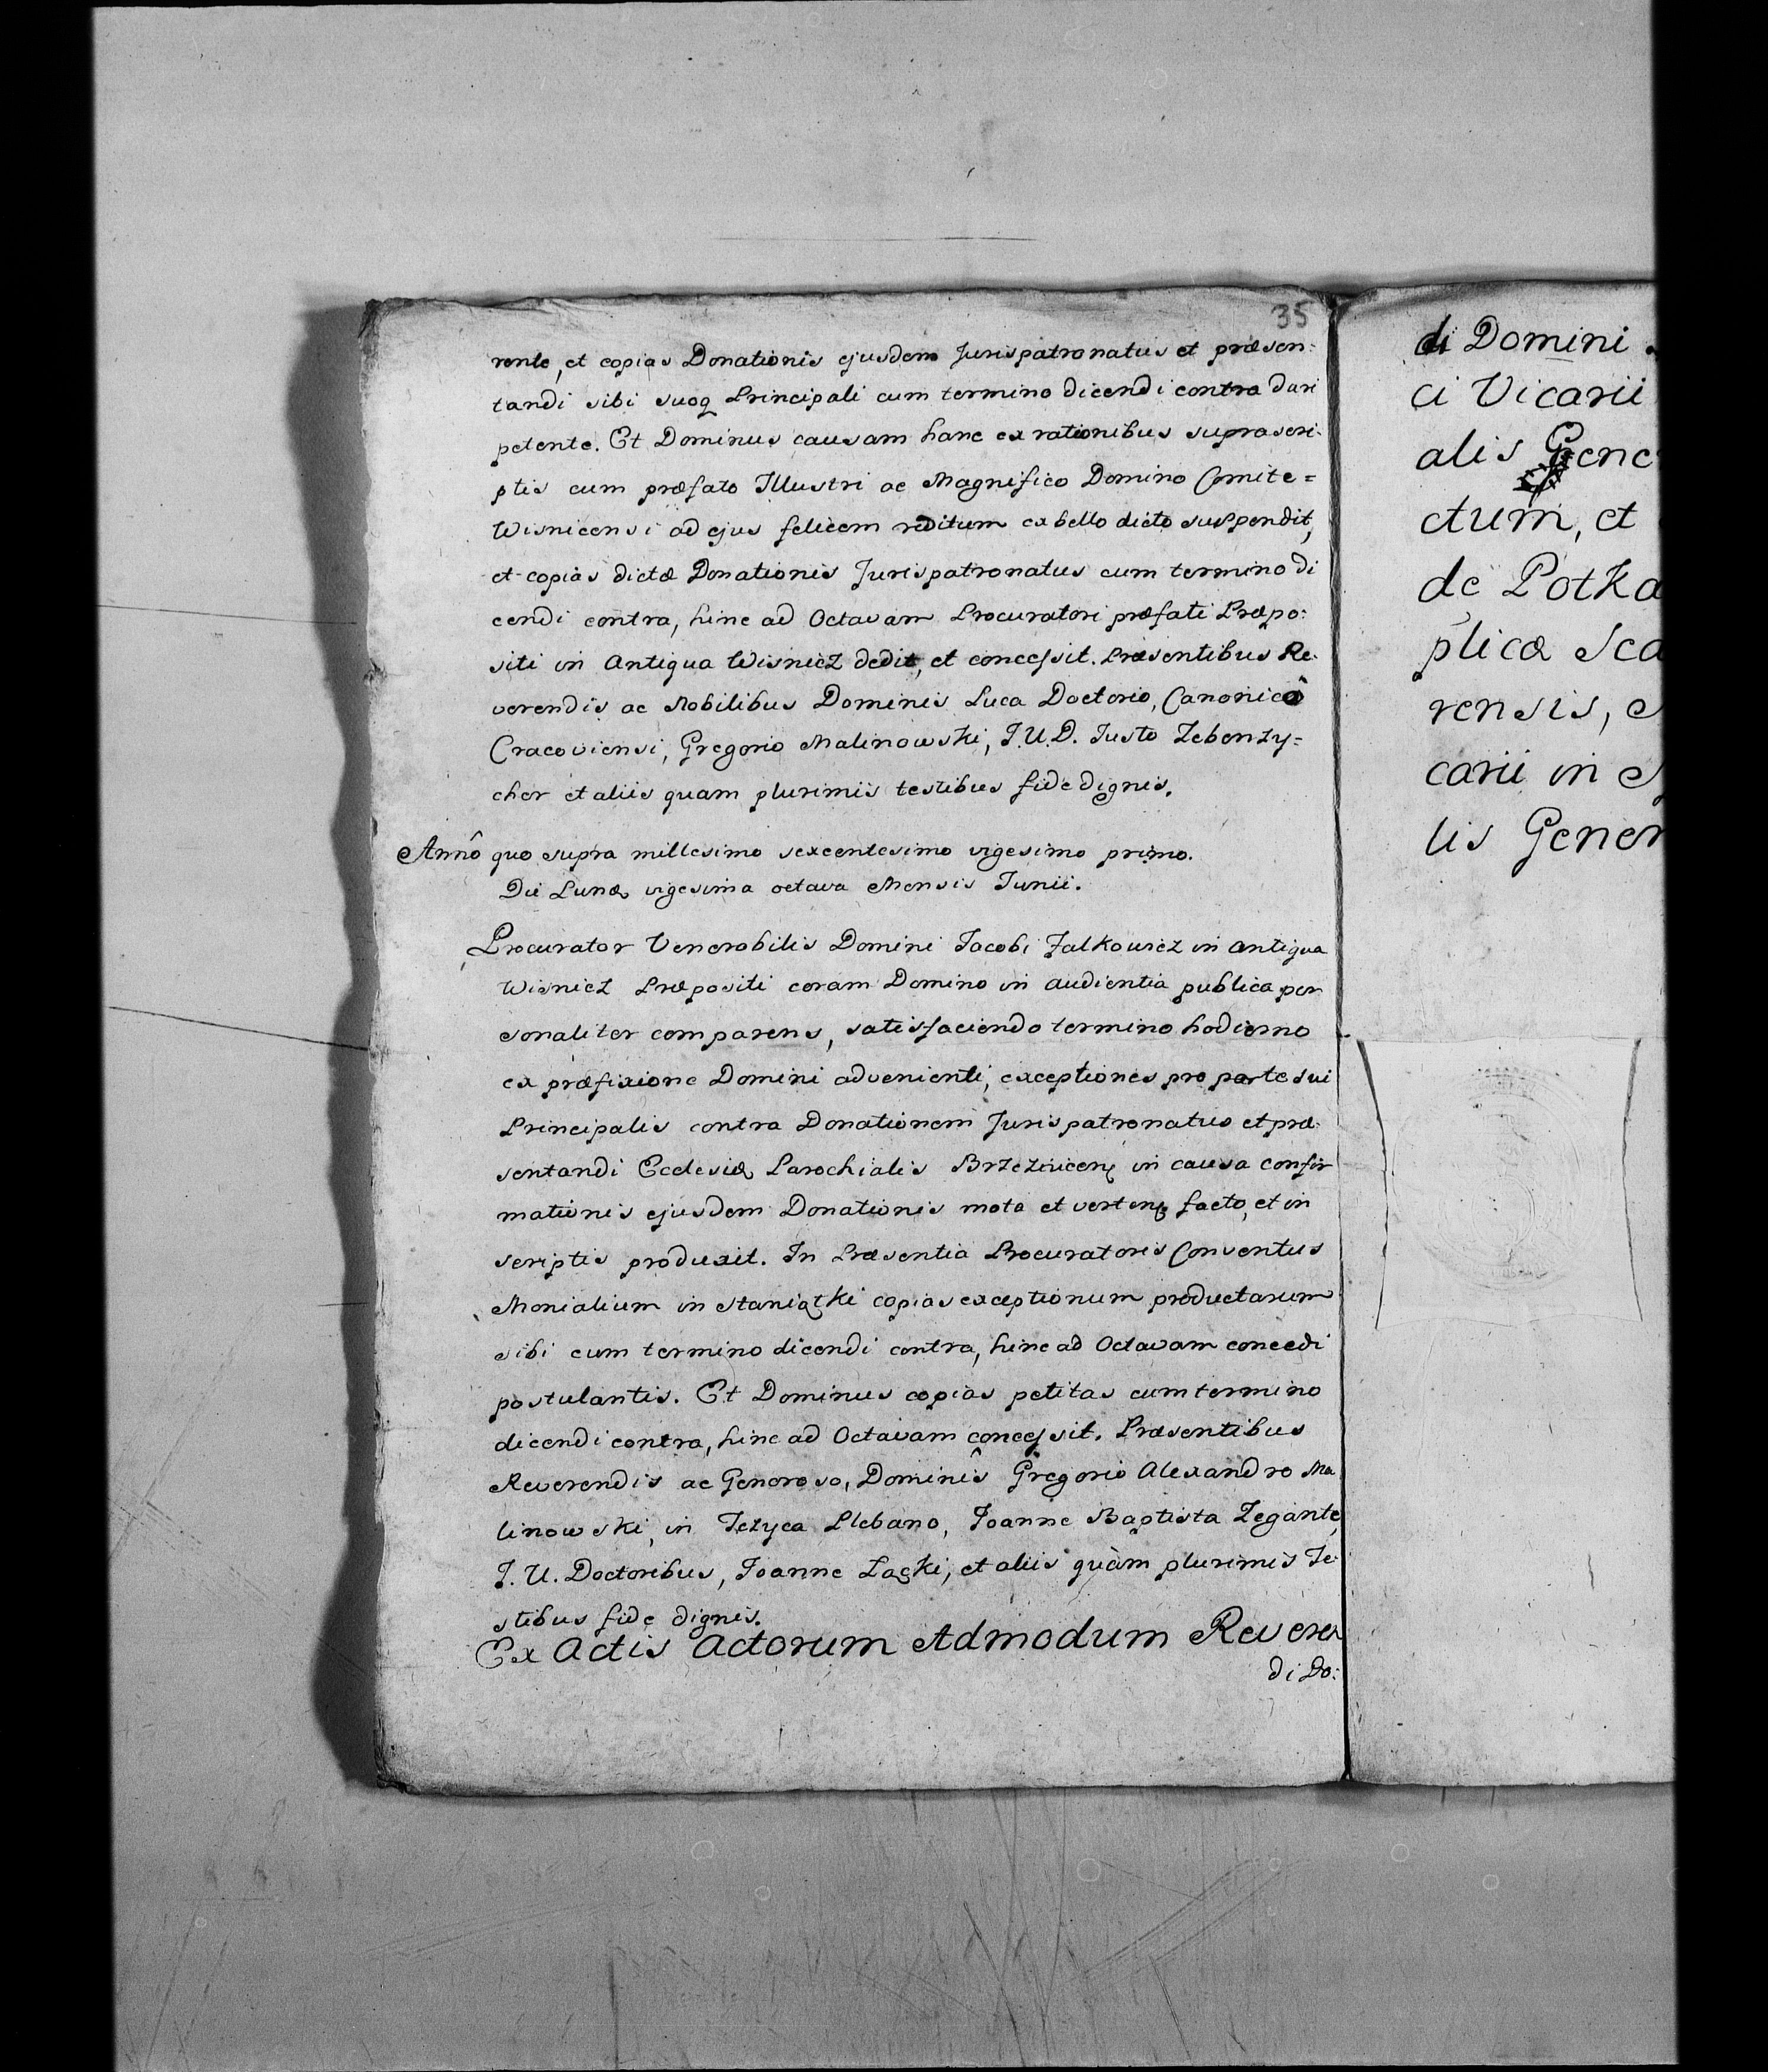 35
rente, et copias Donationis ejusdem Jurispatronatus et præsen:
tandi sibi suoq Principali cum termino dicendi contra dari
petente. Et Dominus causam hanc ex rationibus suprascri:
ptis cum præfato Illustri ac Magnifico Domino Comite=
Wisnicensi ad ejus felicem reditum ex bello dicto suspendit,
et copias dictæ Donationis Jurispatronatus cum termino di
cendi contra, hinc ad Octavam Procuratori præfati Præpo:
siti in Antiqua Wisnicz dedit, et concessit. Præsentibus Re:
verendis ac Nobilibus Dominis Luca Doctorio, Canonico
Cracoviensi, Gregorio Malinowski, J.U.D. Justo Zebenzy=
cher et aliis quam plurimis testibus fide dignis.
Annô quo supra millesimo sexcentesimo vigesimo primo.
Die Lunæ vigesima octava Mensis Junii.
Procurator Venerabilis Domini Jacobi Falkowicz in antiqua
Wisnicz Præpositi coram Domino in audientia publica per
sonaliter comparens, satisfaciendo termino hodierno
ex præfixione Domini advenienti, exceptiones pro parte sui
Principalis contra Donationem Jurispatronatus et præ:
sentandi Ecclesiæ Parochialis Brzezniceñ in causa confir
mationis ejusdem Donationis mota et verteñ facto, et in
scriptis produxit. In Præsentia Procuratoris Conventus
Monialium in Staniątki copias exceptionum productarum
sibi cum termino dicendi contra, hinc ad Octavam concedi
postulantis. Et Dominus copias petitas cum termino
dicendi contra, hinc ad Octavam concessit. Præsentibus
Reverendis ac Generoso, Dominîs Gregorio Alexandro Ma
linowski, in Tczyca Plebano, Joanne Baptista Zegante,
J. U. Doctoribus, Joanne Łącki, et aliis quàm plurimis Te:
stibus fide dignis.
Ex Actis Actorum Admodum Reveren
di Do:
di Domini
ci Vicarii
alis Gene
ctum, et
de Potka
plicæ Sca
rensis,
carii in
lis Gener